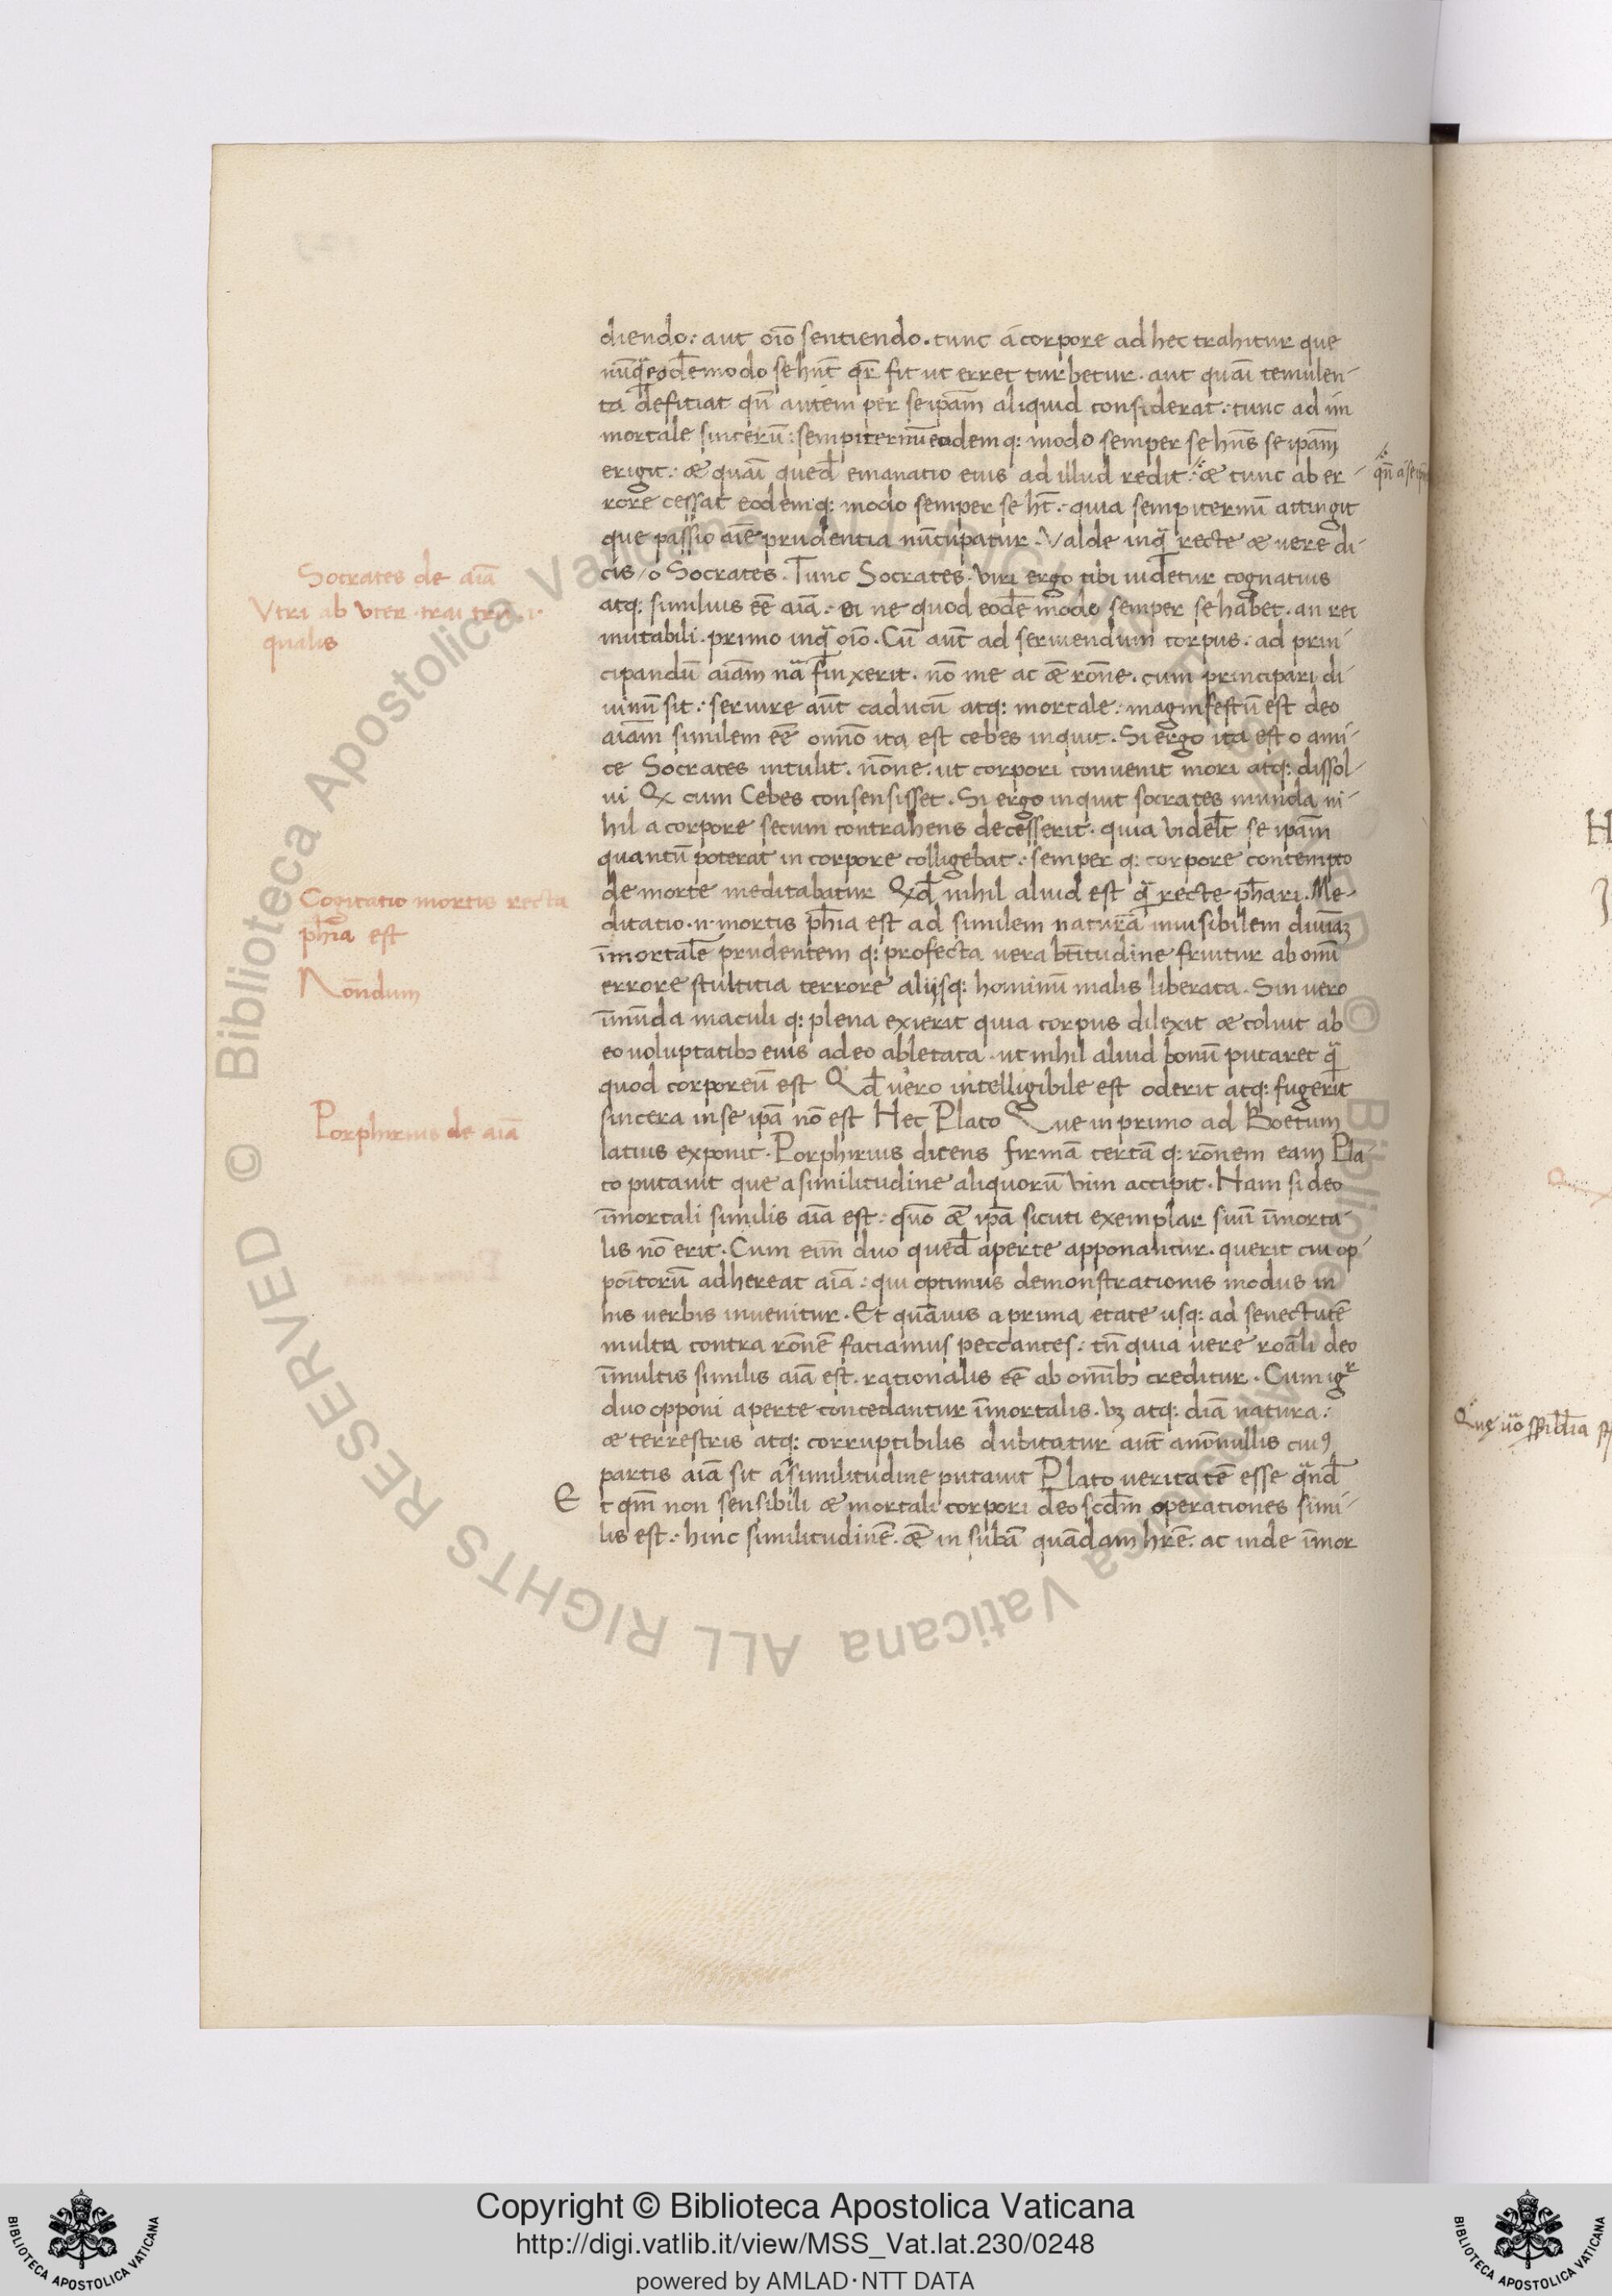 diendo: aut oīo sentiendo. tunc a corpore ad hec trahitur que
nūq̄ eodē modo se hn̄t qr̄ fit ut erret turbetur. aut quāi temulen-
ta defitiat qn̄ autem per seip̄am aliquid considerat: tunc ad im
mortale sincerū: sempiternū eademq: modo semper se hn̄s se ip̄am
erigit: & quāi qued̄ emanatio eius ad illud redit: & tunc ab er-
qn̄ a se
rore cessat eodemq: modo semper se ht̄: quia sempiternū attingit
que passio aīe prudentia nūcupatur. Valde inq̄ recte & uere di-
Socrates de aīa
cis/o Socrates. Tunc Socrates. Vtri ergo tibi uidetur cognatius
Vtri ab vter
qualis
atq: similius eē aīa: ei ne quod eodē modo semper se habet. an rei
mutabili. primo inq̄ oīo. Cū aūt ad seruiendum corpus: ad prin-
cipandū aīam nā finxerit. nō me ac & rōne. cum principari di-
uinū sit: seruire aūt caducū atq: mortale: magnifestū est deo
aīam similem eē omīo ita est cebes inquit. Si ergo ita est o ami-
ce Socrates intulit. nōne. ut corpori conuenit mori atq: dissol-
ui Qx cum Cebes consensisset. Si ergo inquit socrates munda ni-
hil a corpore secum contrahens decesserit. quia videlt̄ se ip̄am
quantū poterat in corpore colligebat: semper q: corpore contempto
Cogitatio mortis recta
ph̄ia est
de morte meditabatur Qd̄ nihil aliud est q̄ recte ph̄ari. Me-
ditatio.n. mortis ph̄ia est ad similem naturā inuisibilem diuīaꝫ
Nōndum
īmortalē prudentem q: profecta uera bt̄itudine fruitur ab omī
errore stultitia terrore alijsq: hominū malis liberata. Sin uero
īmūda maculi q: plena exierit quia corpus dilexit & coluit ab
eo uoluptatibꝫ eius adeo abletata. ut nihil aliud bonū putaret q̄
quod corporeū est Qd̄ uero intelligibile est oderit atq: fugerit
Porphirius de aīa
sincera in se ip̄a nō est Hec Plato Que in primo ad Boetum
latius exponit. Porphirius dicens firmā certā q: rōnem eam Pla
to putauit que a similitudine aliquorū vim accipit. Nam si deo
īmortali similis aīa est: quō & ip̄a sicuti exemplar suū īmorta-
lis nō erit. Cum eīm duo qued̄ aperte apponantur. querit cui op-
poītorū adhereat aīa: qui optimus demonstrationis modus in
his uerbis inuenitur. Et quāuis a prima etate usq: ad senectutē
multa contra rōnē faciamus peccantes: tn̄ quia uere roāli deo
īmultis similis aīa est. rationalis eē ab omībꝫ creditur. Cum igr
duo opponi aperte concedantur īmortalis. vꝫ atq: diā natura:
& terrestris atq: corruptibilis dubitatur aūt anōnullis cuiꝯ
partis aīa sit a similitudine putauit Plato ueritatē esse
Et qm̄ non sensibili & mortali corpori deo scd̄m operationes simi-
lis est: hinc similitudinē. & in sub̄am quādam hr̄e. ac inde īmor
Copyright © Biblioteca Apostolica Vaticana
http://digi.vatlib.it/view/MSS_Vat.lat.230/0248
powered by AMLAD · NTT DATA